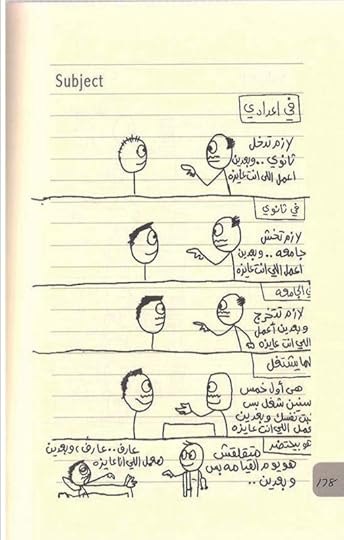 Subject
في اعدادي
لازم تدخل
ثانوي .. وبعدين
اعمل اللي انت عايزه
في ثانوي
لازم تخش
جامعه .. وبعدين
اعمل اللي انت عايزه
في الجامعه
لازم تتخرج
وبعدين أعمل
اللي انت عايزه
لما يشتغل
هي أول خمس
سنين شغل بس
تثبت نفسك وبعدين
اعمل اللي انت عايزه
هو بيحتضر
عارف .. عارف ، وبعدين
هعمل اللي انا عايزه
متقلقش
هو يوم القيامه بس
وبعدين ..
178